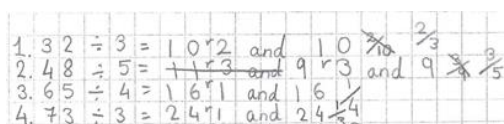 1. 32 ÷ 3 = 10 r 2 and 10 2/3
2. 48 ÷ 5 = 11 r 3 and 9 r 3 and 9 3/5
3. 65 ÷ 4 = 16 r 1 and 16 1/4
4. 73 ÷ 3 = 24 r 1 and 24 1/3